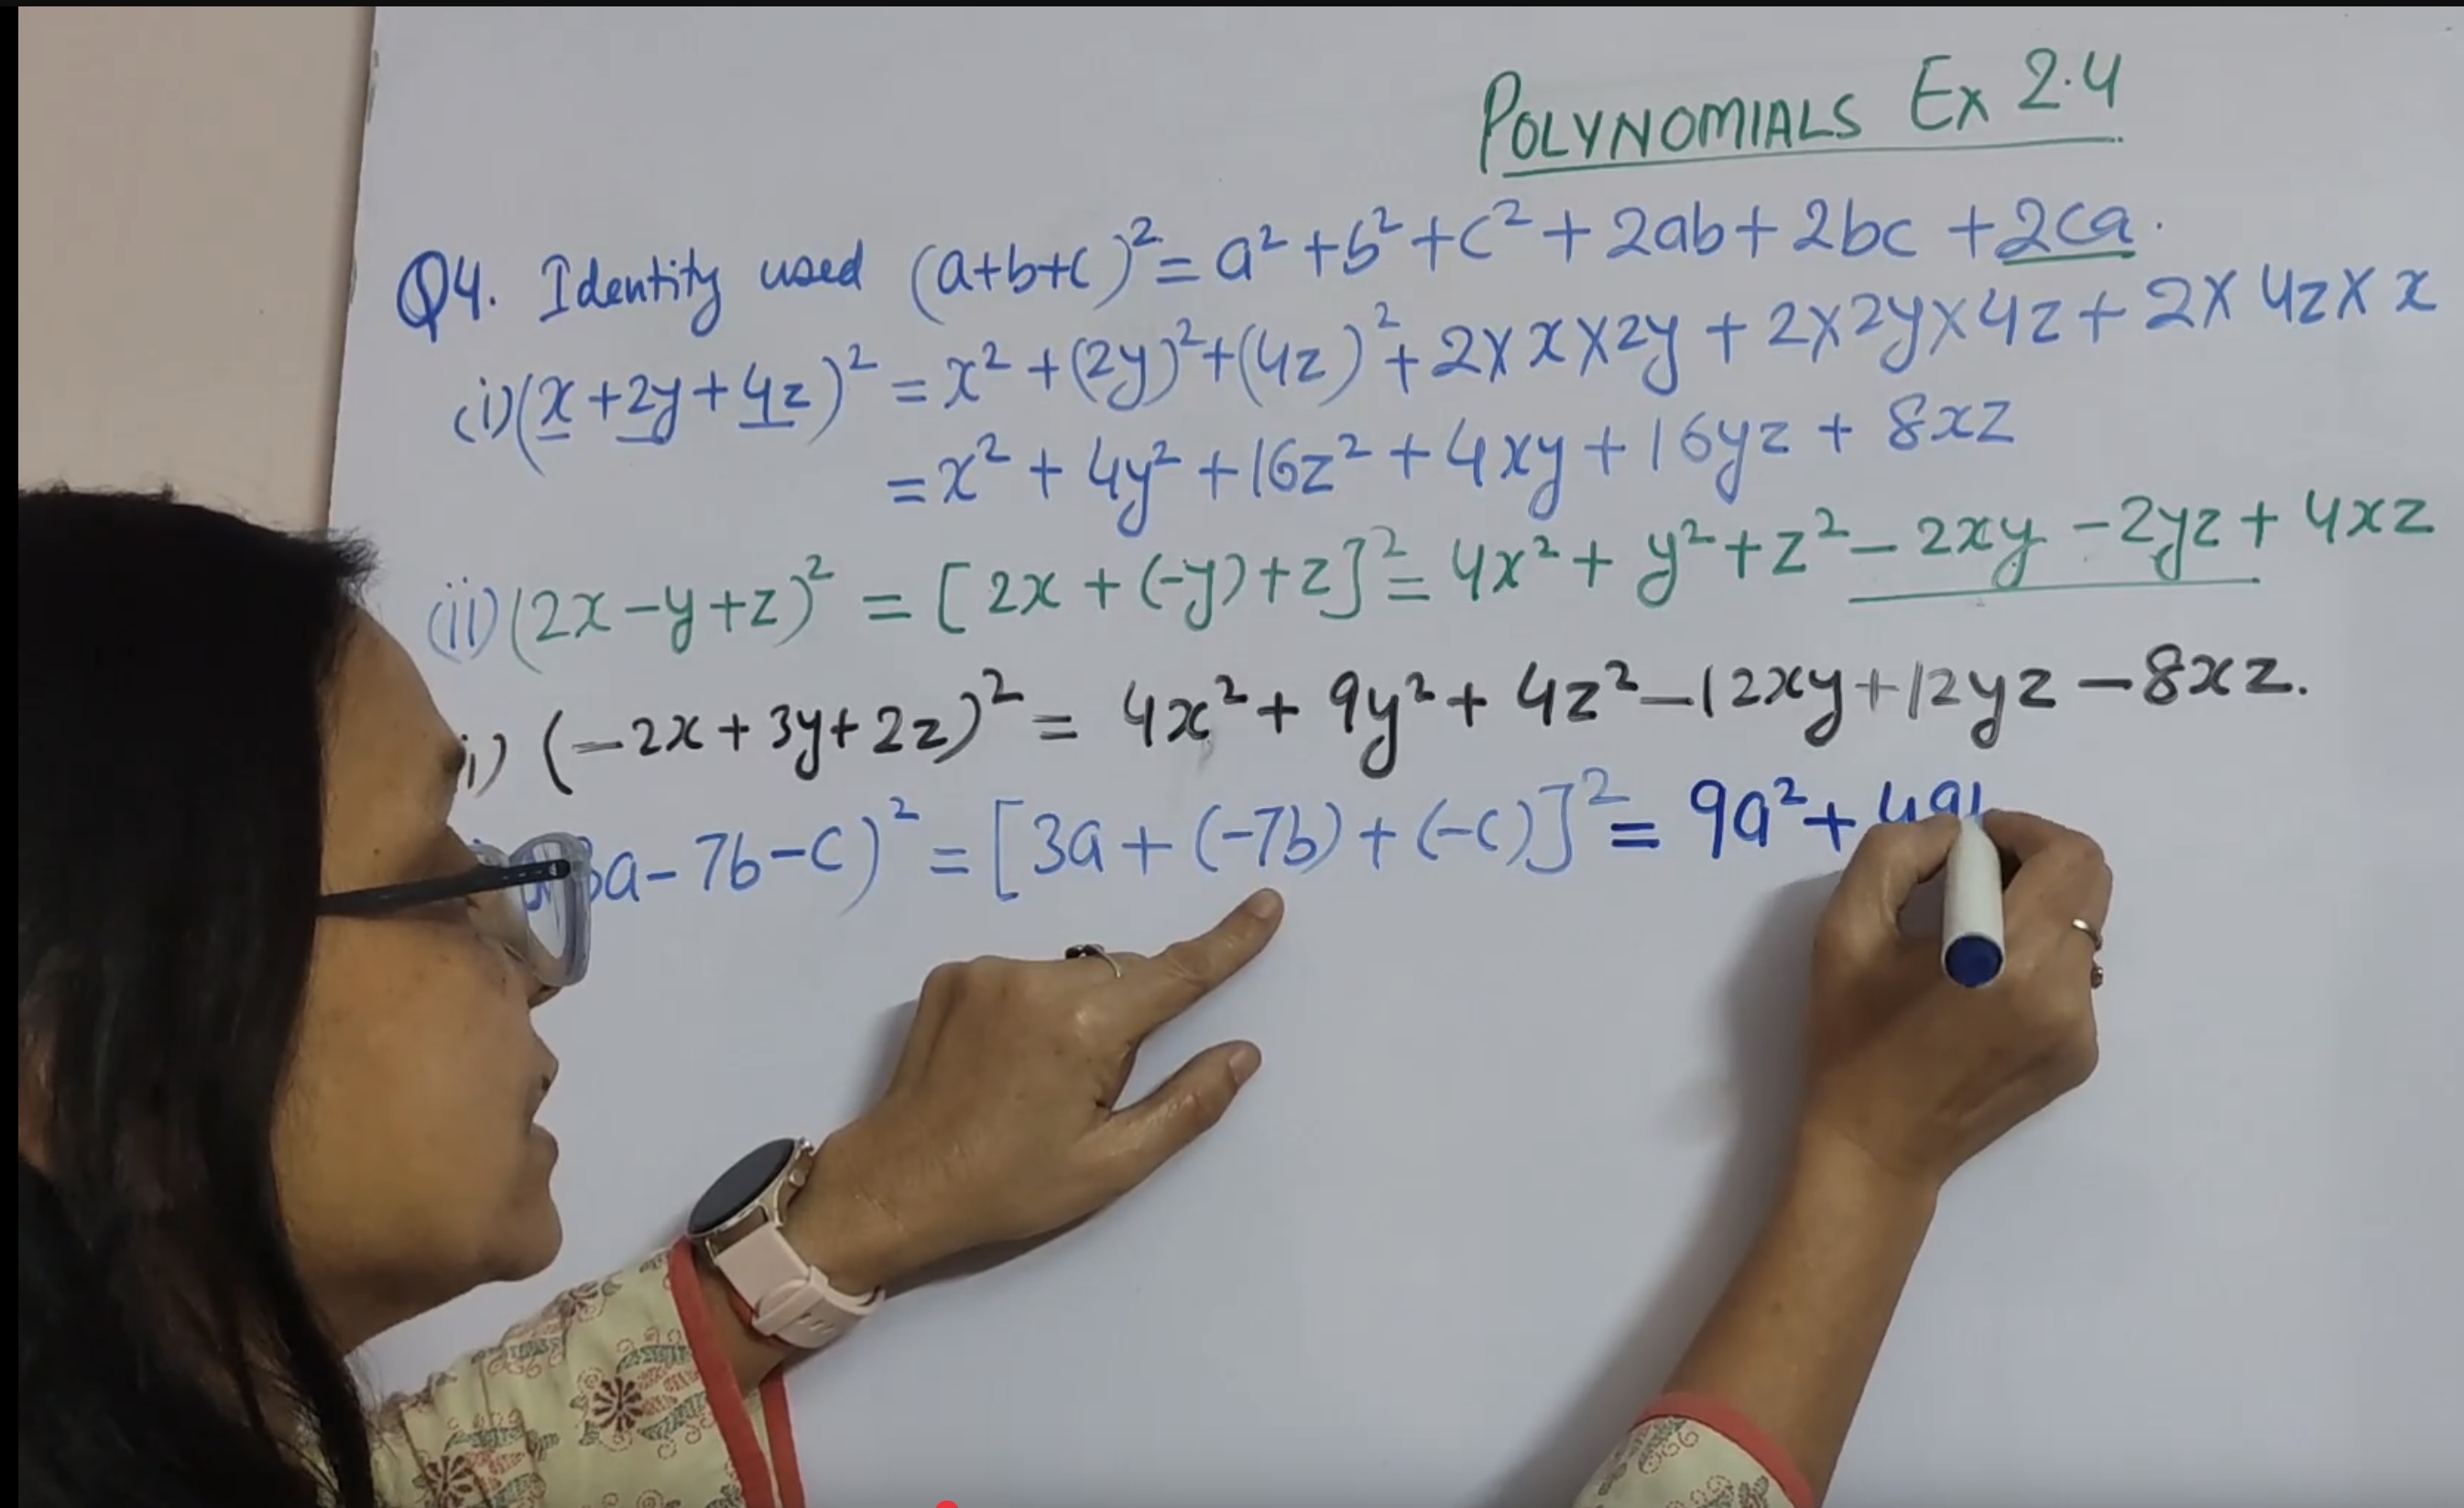 POLYNOMIALS Ex 2.4
Q4. Identity used (a+b+c)² = a² + b² + c² + 2ab + 2bc + 2ca.
(i) (x + 2y + 4z)² = x² + (2y)² + (4z)² + 2 × x × 2y + 2 × 2y × 4z + 2 × 4z × x
= x² + 4y² + 16z² + 4xy + 16yz + 8xz
(ii) (2x - y + z)² = [2x + (-y) + z]² = 4x² + y² + z² - 2xy - 2yz + 4xz
i) (-2x + 3y + 2z)² = 4x² + 9y² + 4z² - 12xy + 12yz - 8xz.
3a - 7b - c)² = [3a + (-7b) + (-c)]² = 9a² + 49